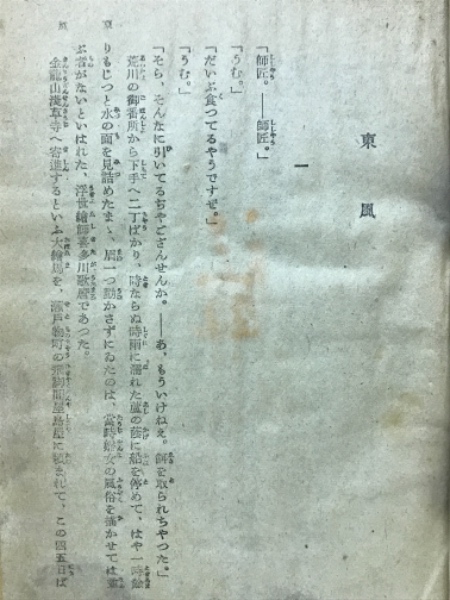 東風
東風
一
「師匠。――師匠。」
「うむ。」
「だいぶ食つてるやうですぜ。」
「うむ。」
「そら、そんなに引いてるぢやござんせんか。――あ、もういけねえ。餌を取られちやつた。」
荒川の御番所から下手へ二丁ばかり、時ならぬ時雨に濡れた蘆の蔭に船を停めて、はや一時餘
りもじつと水の面を見詰めたまゝ、眉一つ動かさずにゐたのは、當時婦女の風俗を描かせては並
ぶ者がないといはれた、浮世繪師喜多川歌麿であつた。
金龍山淺草寺へ寄進するといふ大繪馬を、瀬戸物町の問屋島屋に頼まれて、この四五日ば